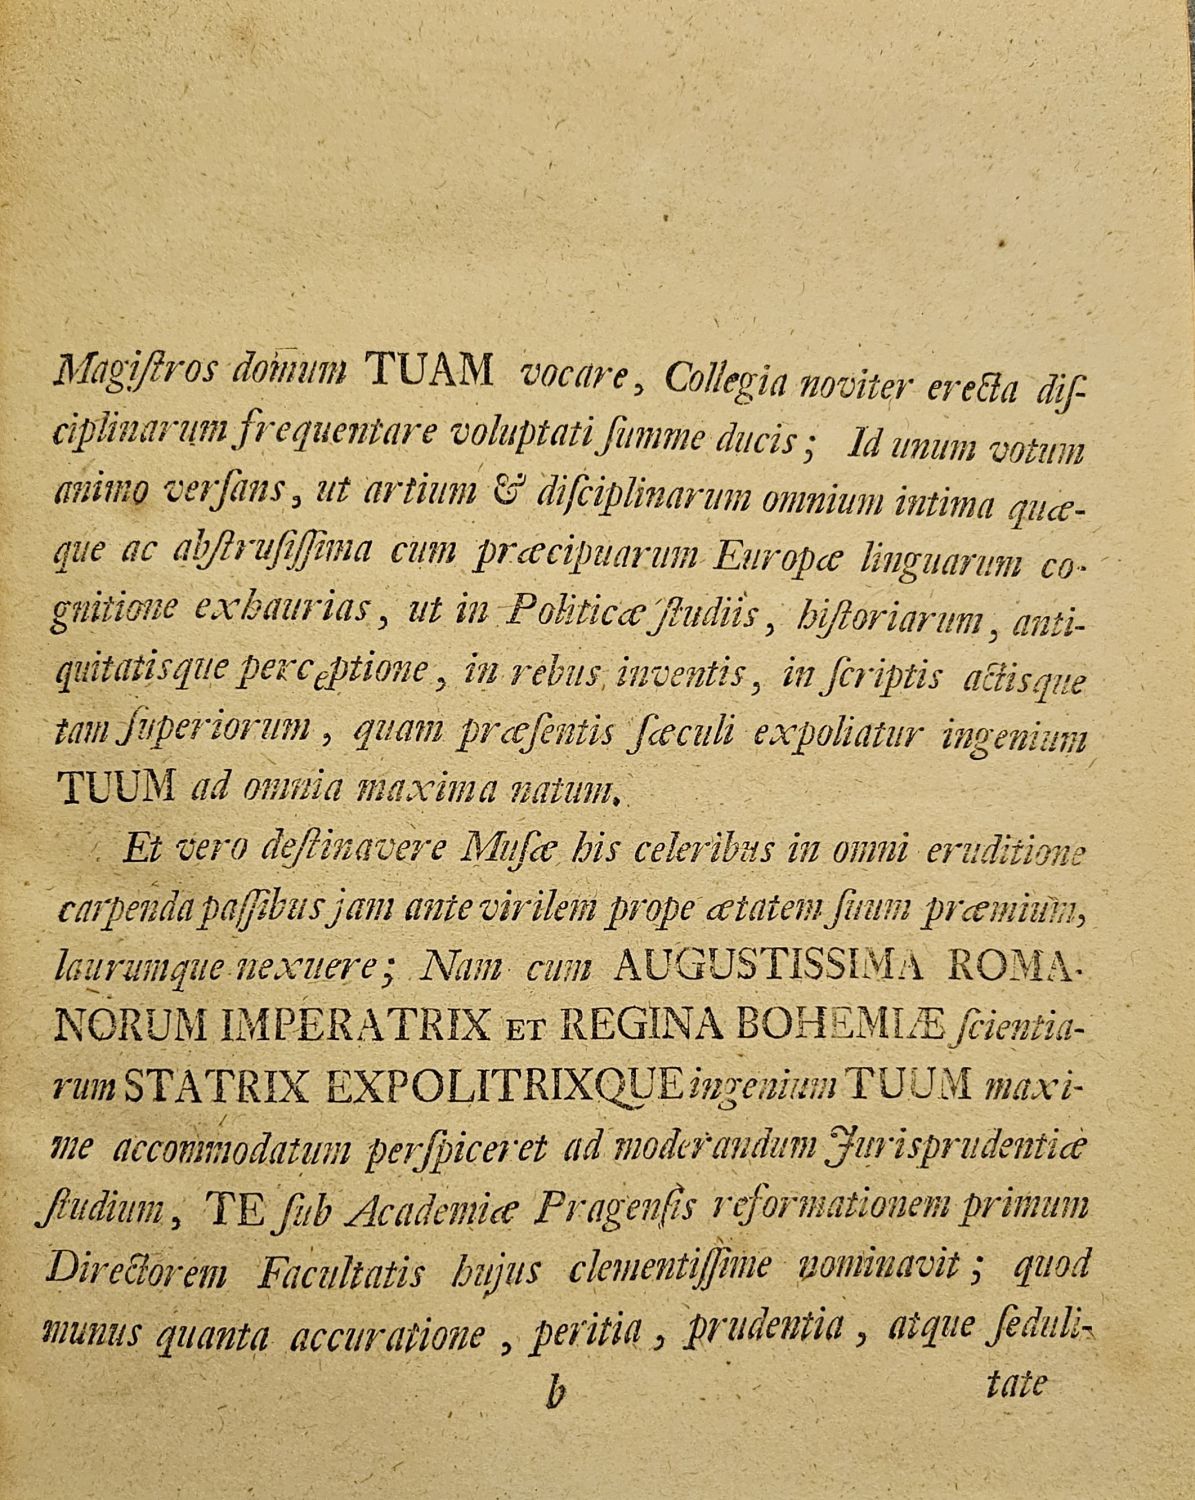 Magiſtros domum TUAM vocare, Collegia noviter erecta diſ-
ciplinarum frequentare voluptati ſumme ducis; Id unum votum
animo verſans, ut artium & diſciplinarum omnium intima quæ-
que ac abſtruſiſſima cum præcipuarum Europæ linguarum co-
gnitione exhaurias, ut in Politicæ ſtudiis, hiſtoriarum, anti-
quitatisque perceptione, in rebus inventis, in ſcriptis actisque
tam ſuperiorum, quam præſentis ſæculi expoliatur ingenium
TUUM ad omnia maxima natum.
Et vero deſtinavere Muſæ his celeribus in omni eruditione
carpenda paſſibus jam ante virilem prope ætatem ſuum præmium,
laurumque nexuere; Nam cum AUGUSTISSIMA ROMA-
NORUM IMPERATRIX ET REGINA BOHEMIÆ ſcientia-
rum STATRIX EXPOLITRIXQUE ingenium TUUM maxi-
me accommodatum perſpiceret ad moderandum Jurisprudentiæ
ſtudium, TE ſub Academiæ Pragenſis reformationem primum
Directorem Facultatis hujus clementiſſime nominavit; quod
munus quanta accuratione, peritia, prudentia, atque ſeduli-
b tate